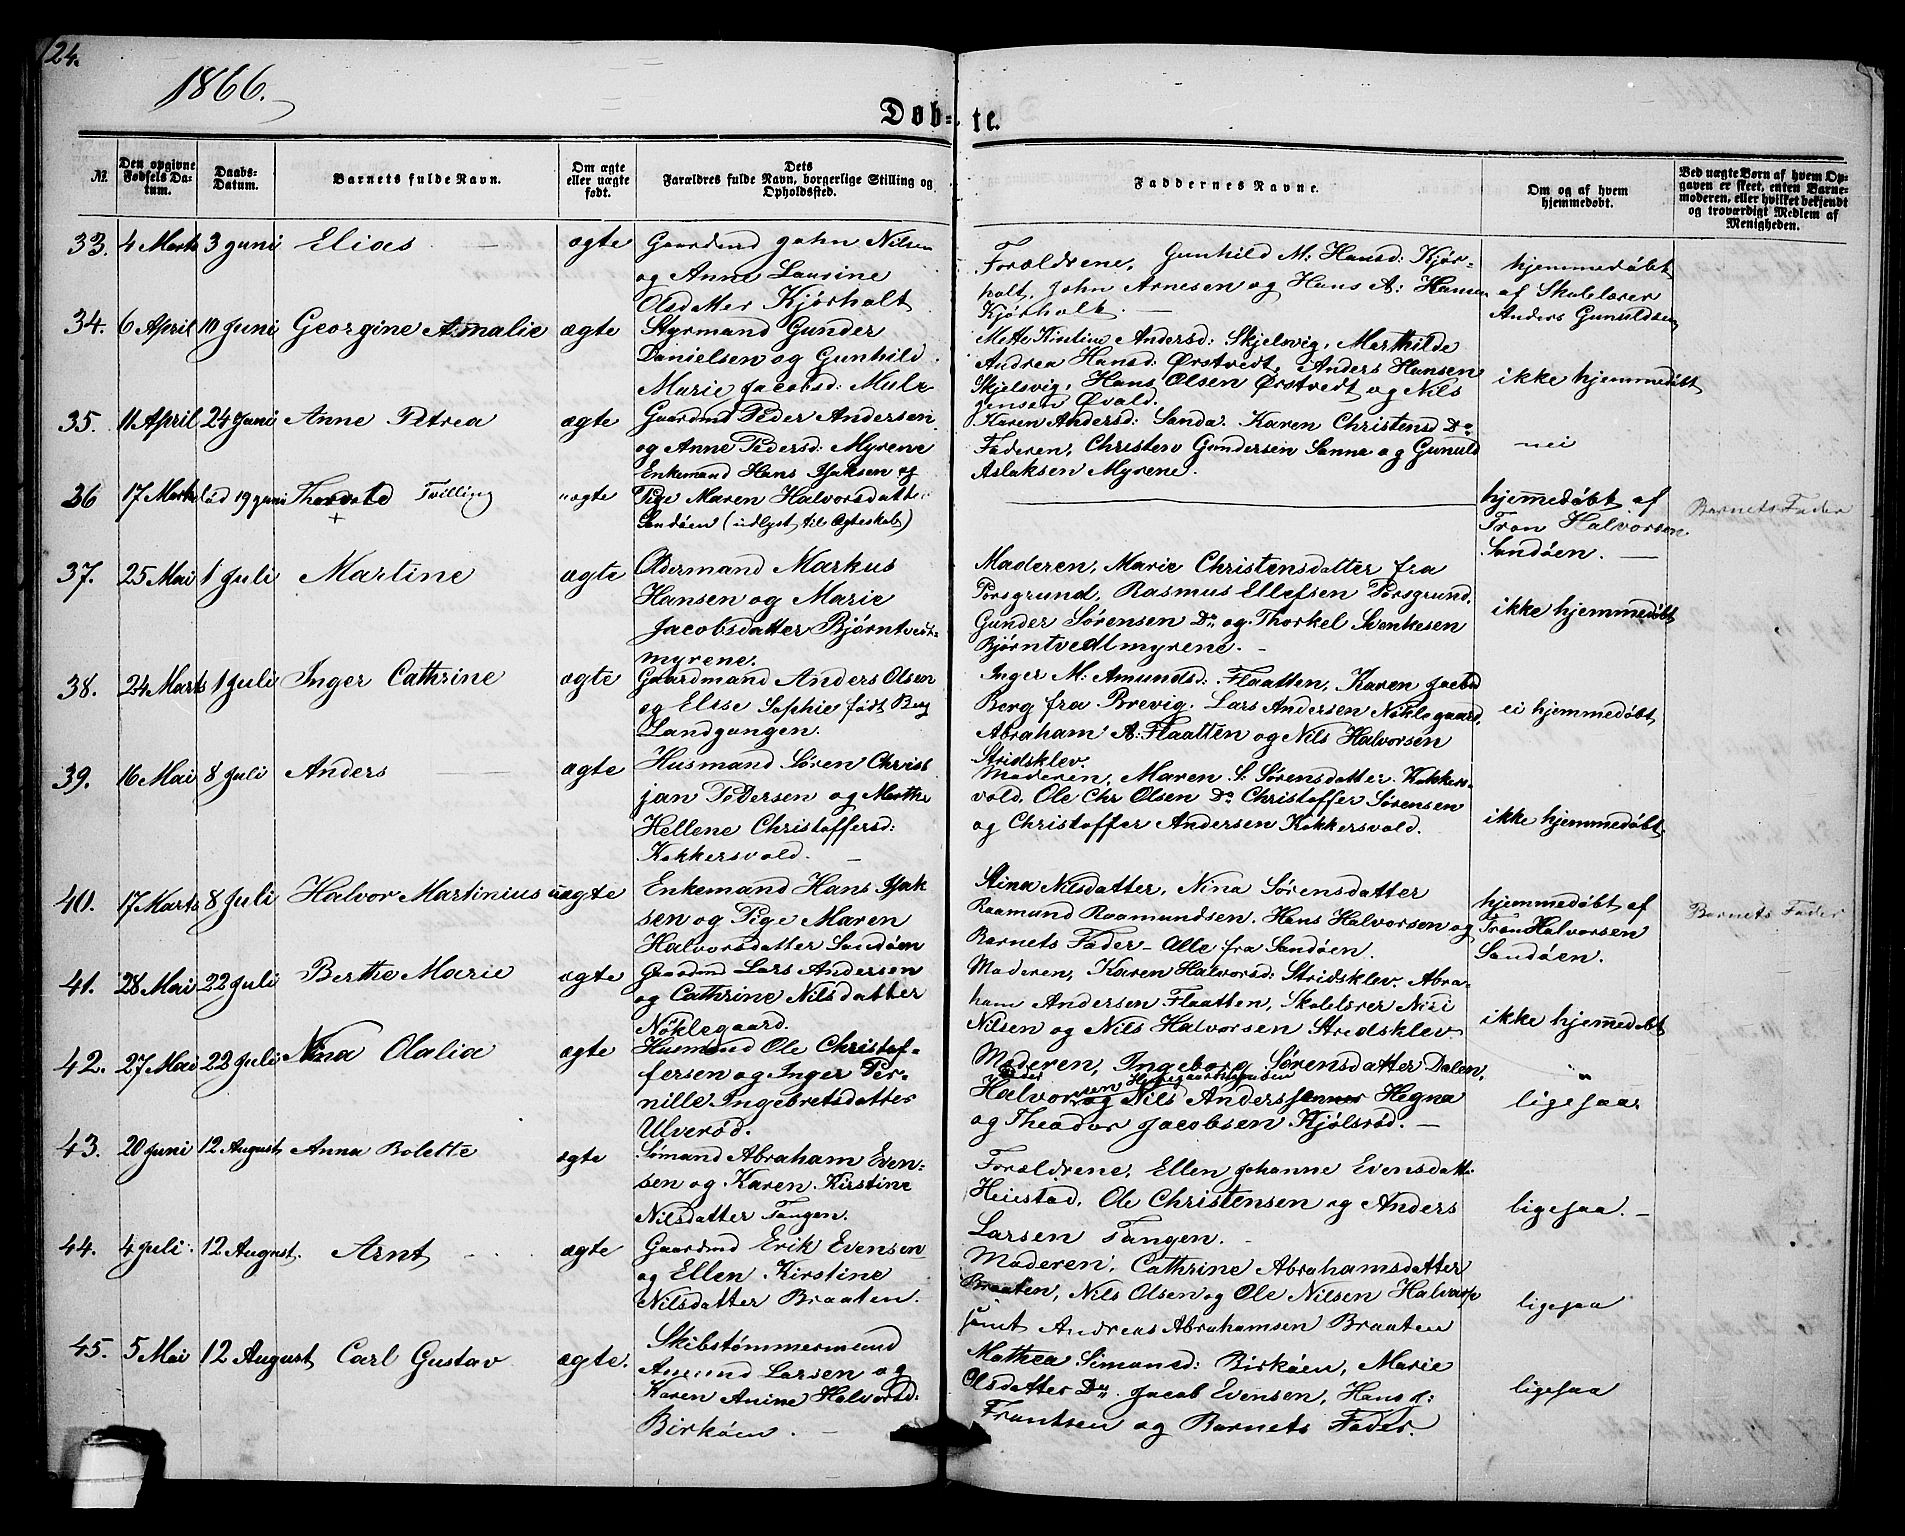 124.
1866.
Døb-te.
№.
Den opgivne Fødsels Datum.
Daabs-Datum.
Barnets fulde Navn.
Om ægte eller uægte født.
Dets Forældres fulde Navn, borgerlige Stilling og Opholdssted.
Faddernes Navne.
Om og af hvem hjemmedøbt.
Ved uægte Børn af hvem Opgaven er skeet, enten Barnemoderen, eller hvilket bekjendt og troværdigt Medlem af Menigheden.
33. 4 Marts 3 Juni Elias ægte
Gaardmd John Nilsen
og Anne Laurine
Olsdatter Kjørholt
Forældrene, Gunhild M: Hansd: Kjør-
holt, John Arnesen og Hans A: Hansen
Kjørholt. —
hjemmedøbt
af Skolelærer
Anders Gunuldsen
34. 6 April 10 Juni Georgine Amalie ægte
Styrmand Gunder
Danielsen og Gunhild
Marie Jacobsd: Mule
Mette Kirstine Andersd: Skjelsvig, Marthilde
Andrea Hansd: Ørstvedt, Anders Hansen
Skjelsvig, Hans Olsen Ørstvedt og Nils
Jensen Øvald.
ikke hjemmedøbt
35. 11 April 24 Juni Anne Petrea ægte
Gaardmd Peder Andersen
og Anne Pedersd: Myrene
Karen Andersd: Sanda. Karen Christensd Do
Faderen, Christen Gundersen Sanne og Gunuld
Aslaksen Myrene.
nei
36 17 Marts død 19 Juni Tvilling uægte
Enkemand Hans Isaksen og
Pige Maren Halvorsdatt:
Sandøen (udlyst til Ægteskab)
hjemmedøbt af
Tron Halvorsen
Sandøen. —
Barnets Fader
37. 25 Mai 1 Juli Martine ægte
Oldermand Markus
Hansen og Marie
Jacobsdatter Bjørntvedt-
myrene.
Moderen, Marie Christensdatter fra
Porsgrund, Rasmus Ellefsen Porsgrund,
Gunder Sørensen Do og Thorkel Svenkesen
Bjørntvedtmyrene. —
ikke hjemmedøbt
38. 24 Marts 1 Juli Inger Cathrine ægte
Gaardmand Anders Olsen
og Elise Sophie født Berg
Landgangen.
Inger M: Amundsd: Flaatten, Karen Jacobd
Berg fra Brevig. Lars Andersen Nøklegaard,
Abraham A: Flaatten og Nils Halvorsen
Stridsklev.
ei hjemmedøbt
39. 16 Mai 8 Juli Anders ægte
Husmand Søren Christ
jan Pedersen og Marthe
Hellene Christoffersd:
Kokkersvold. —
Moderen, Maren S. Sørensdatter Kokkers-
vold, Ole Chr Olsen Do Christoffer Sørensen
og Christoffer Andersen Kokkersvold.
ikke hjemmedøbt
40. 17 Marts 8 Juli Halvor Martinius uægte
Enkemand Hans Isak
sen og Pige Maren
Halvorsdatter Sandøen
Stina Nilsdatter, Nina Sørensdatter
Raamund Raamundsen, Hans Halvorsen og
Barnets Fader - Alle fra Sandøen.
hjemmedøbt af
Tron Halvorsen
Sandøen.
Barnets Fader
41. 28 Mai 22 Juli Berthe Marie ægte
Gaardmd Lars Andersen
og Cathrine Nilsdatter
Nøklegaard.
Moderen, Karen Halvorsd: Stridsklev. Abra-
ham Andersen Flaatten, Skolelærer Nils
Nilsen og Nils Halvorsen Stridsklev
ikke hjemmedøbt
42. 27 Mai 22 Juli Nina Olalia ægte
Husmand Ole Christof-
fersen og Inger Per-
nille Ingebretsdatter
Ulverød.
Moderen, Ingeborg Sørensdatter Dalen,
Halvorsen og Nils Anders Hegna
og Theodor Jacobsen Kjølsrød. —
ligesaa
43. 20 Juni 12 August Anna Bolette ægte
Sømand Abraham Even-
sen og Karen Kirstine
Nilsdatter Tangen.
Forældrene, Ellen Johanne Evensdatt:
Heiestad, Ole Christensen og Anders
Larsen Tangen. —
ligesaa. —
44. 4 Juli 12 August. Arnt ægte
Gaardmd Erik Evensen
og Ellen Kirstine
Nilsdatter Braaten.
Moderen, Cathrine Abrahamsdatter
Braaten, Nils Olsen og Ole Nilsen Halvarp
samt Andreas Abrahamsen Braaten
ligesaa
45. 5 Mai 12 August Carl Gustav ægte.
Skibstømmermand
Amund Larsen og
Karen Anine Halvorsd:
Birkøen. —
Mathea Simonsd: Birkøen, Marie
Olsdatter Do, Jacob Evensen, Hans J:
Frantsen og Barnets Fader.
ligesaa